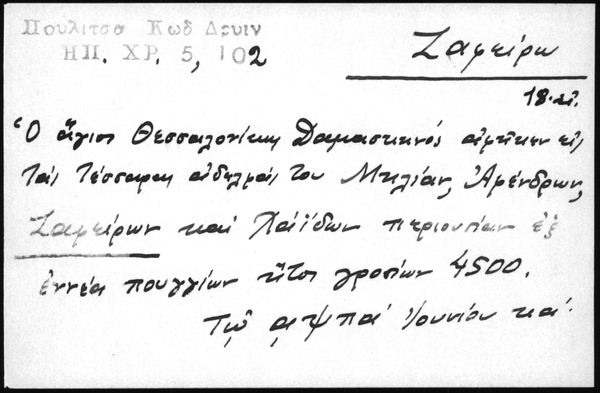 Πουλίτσα Κωδ Δρυιν
ΗΠ. ΧΡ. 5, 102
Ζαφείρω
18. αἰ.
Ὁ ἅγιος Θεσσαλονίκης Δαμασκηνός ἀφῆκεν εἰς
τάς τέσσαρας ἀδελφάς του Μηλιάν, Ἀρένδρων,
Ζαφείρων καί Χάϊδων περιουσίαν ἐξ
ἐννέα πουγγίων ἤτοι γροσίων 4500.
Τῷ αψπα Ἰουνίου κα΄